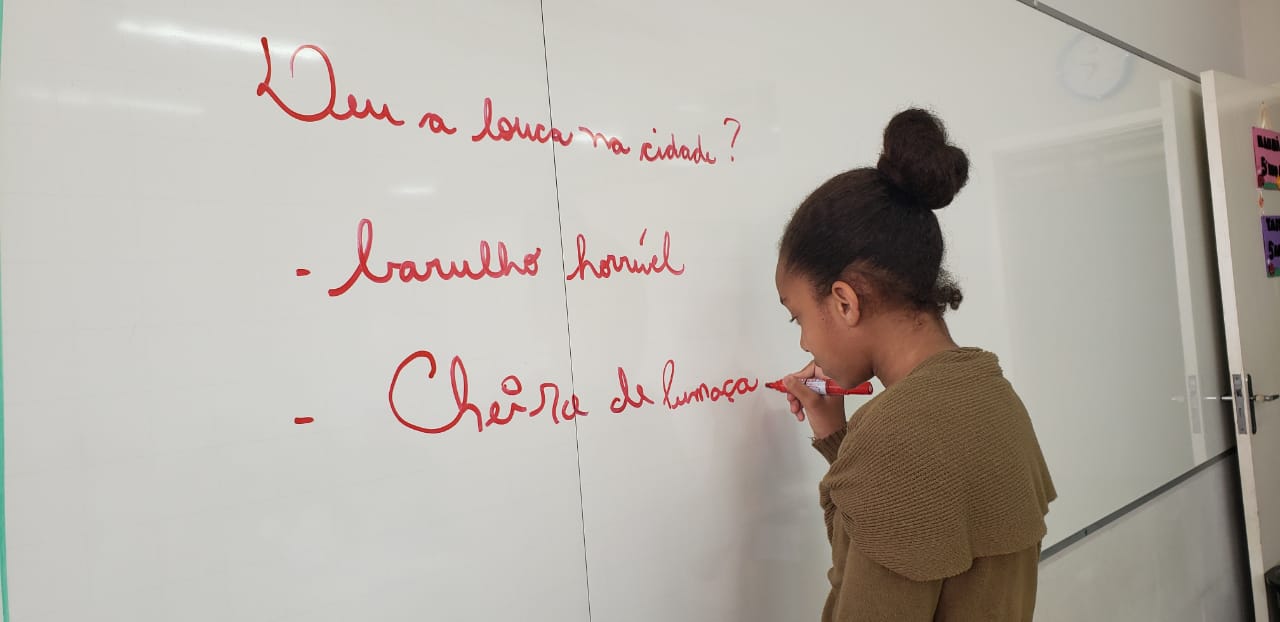 Deu a louca na cidade?
- barulho horrível
- Cheiro de fumaça